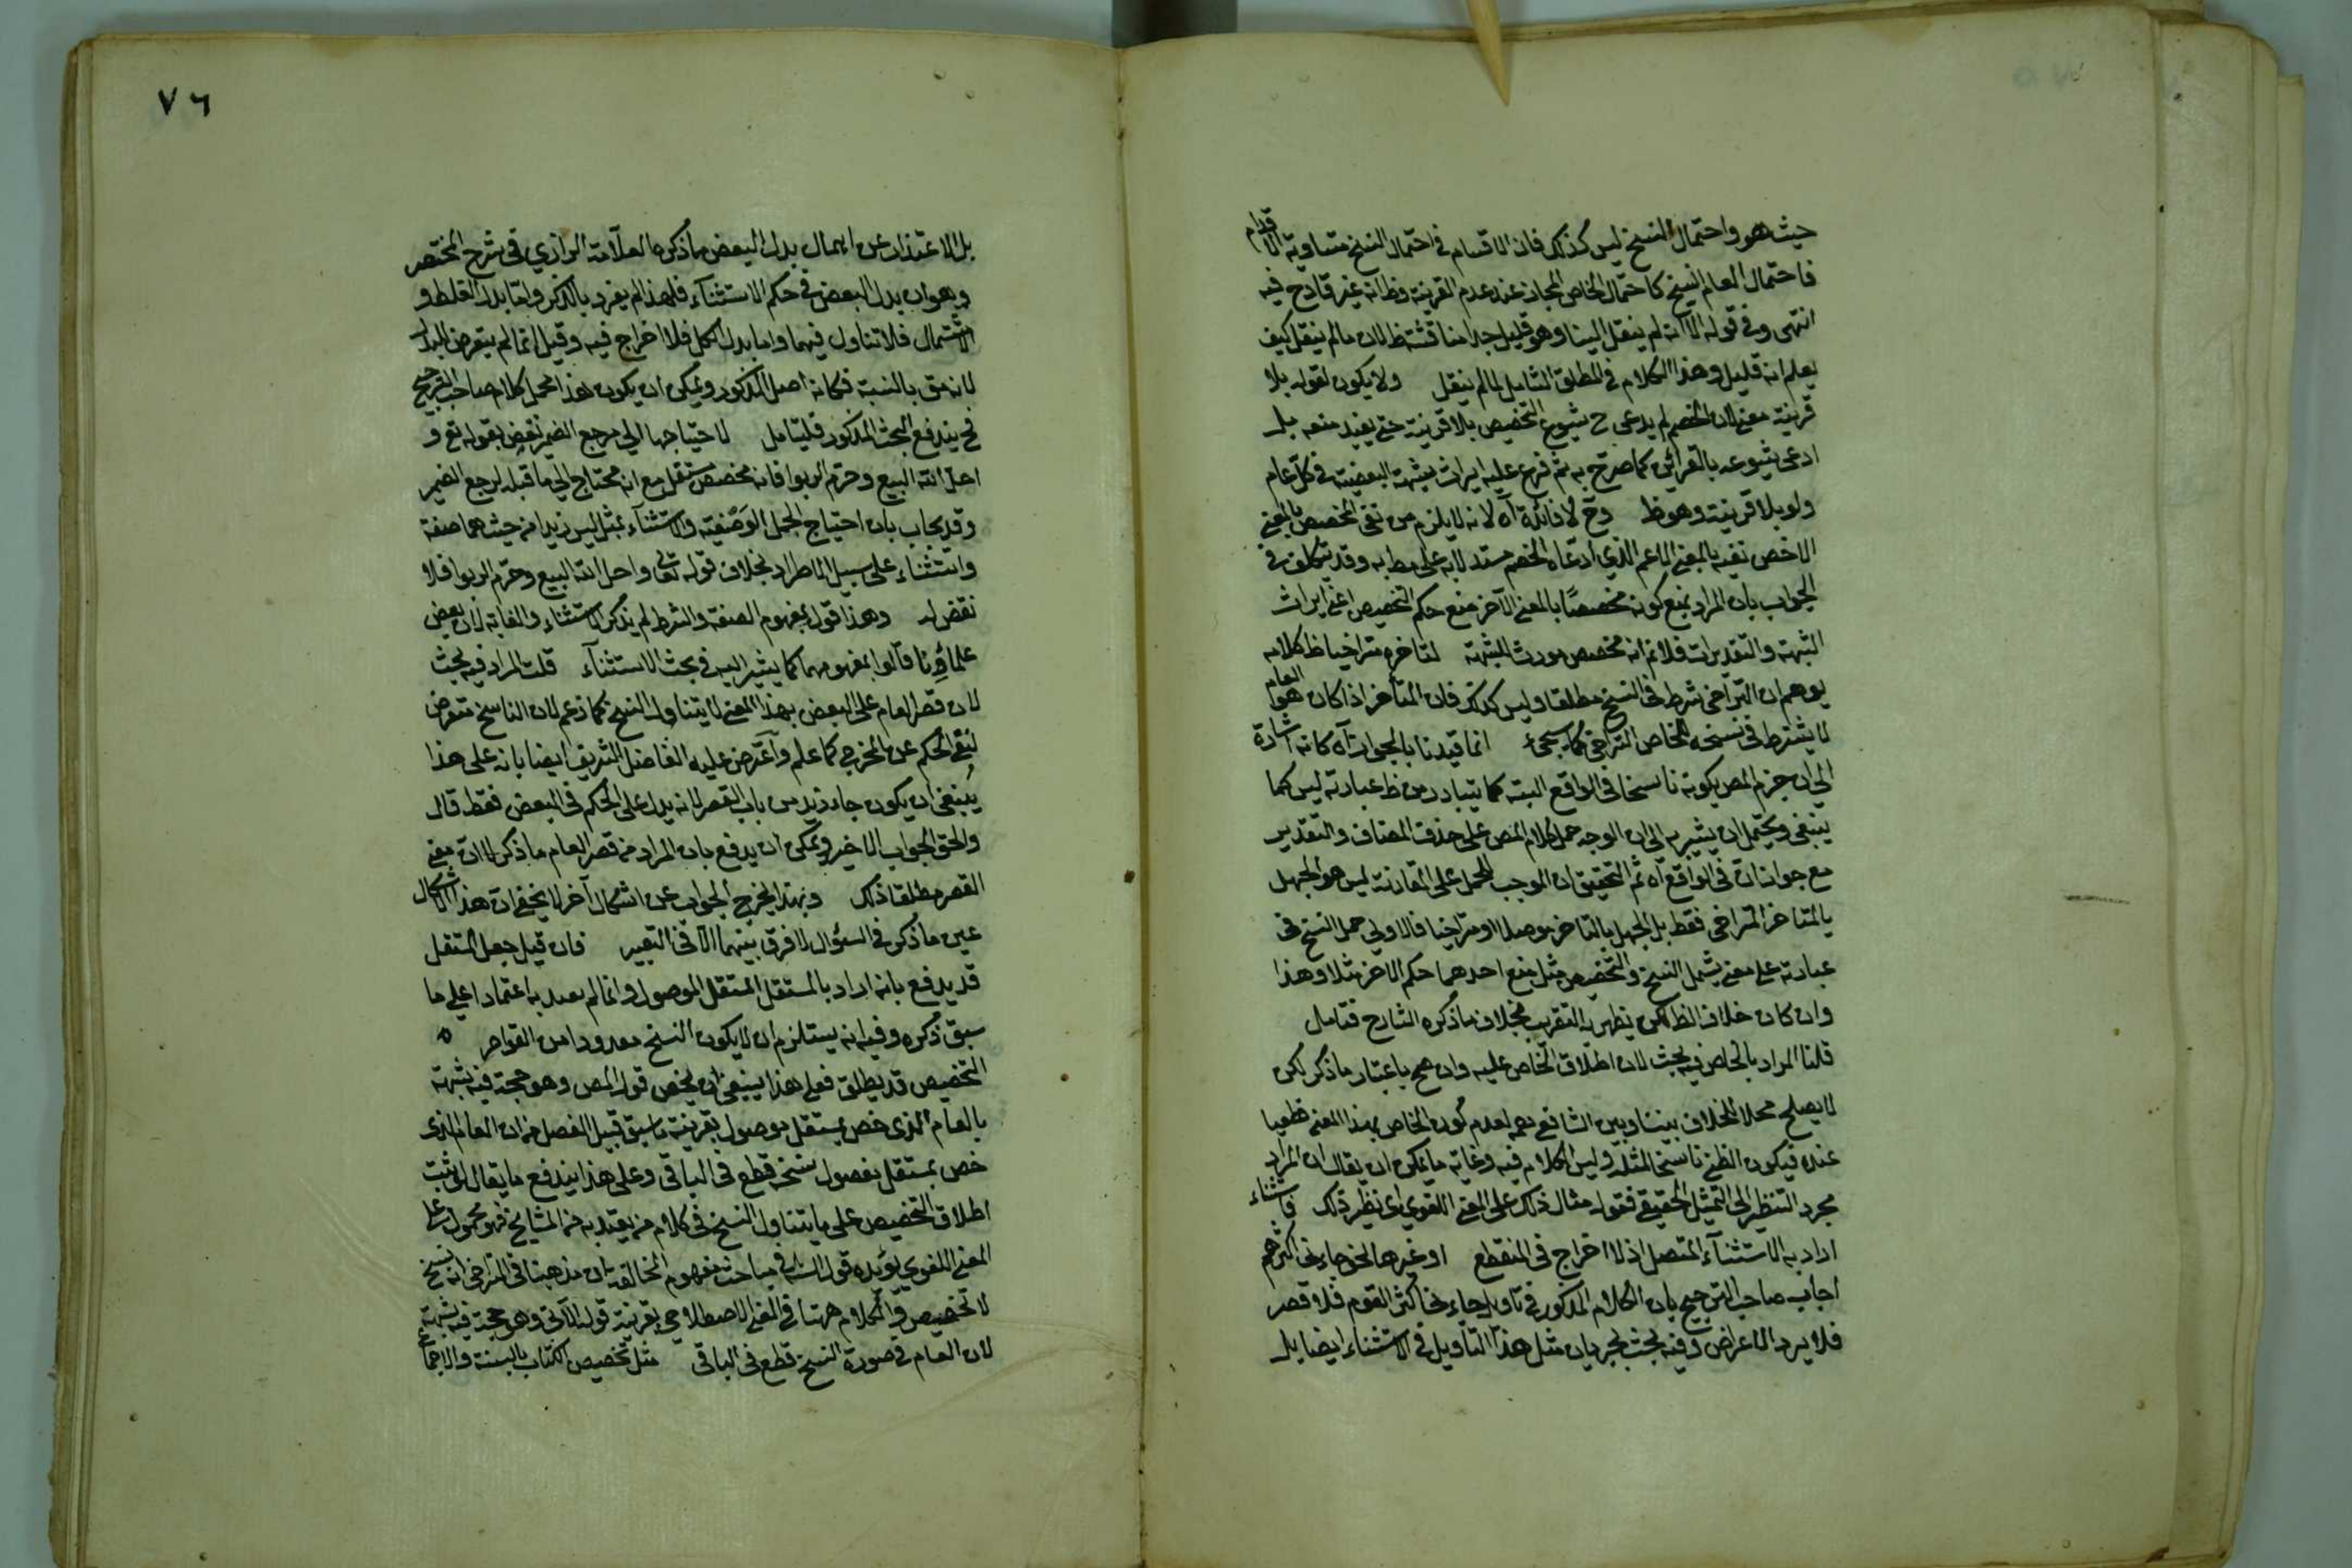 حيث هو واحتمال النسخ ليس كذلك فان الاقسام في احتمال النسخ متساوية الاقدام
فاحتمال العام النسخ كاحتمال الخاص المجاز عند عدم القرينة وظ انه غير قادح فيه
انتهى وفي قوله الا انه لم ينقل الينا وهو قليل جدا مناقشة ظ لان ما لم ينقل كيف
يعلم انه قليل وهذا الكلام في المطلق الشامل لما لم ينقل ولا يكون لقوله بلا
قرينة معنى لان الخصم لم يدعى ح شيوع التخصيص بلا قرينة حتى يفيد منعه بل
ادعى شيوعه بالقرائن كما صرح به ثم فرع عليه ايراث شبهة البعضية في كل عام
ولو بلا قرينة وهو ظ وح لا فائدة آه لانه لا يلزم من نفي المخصص بالمعنى
الاخص نفيه بالمعنى الاعم الذي ادعاه الخصم مستدلا به على مطلبه وقد يتكلف في
الجواب بان المراد بمنع كونه مخصصا بالمعنى الآخر منع حكم التخصيص اعني ايراث
الشبهة والتقدير فلانم انه مخصص مورث الشبهة لتاخره متراخيا ظ كلامه
يوهم ان التراخي شرط في النسخ مطلقا وليس كذلك فان المتأخر اذا كان هو العام
لا يشترط في نسخه للخاص التراخي كما سيجيء انما قيدنا بالجواز آه كانه اشارة
الى ان جزم المص بكونه ناسخا في الواقع البتة كما يتبادر من ظ عبارته ليس كما
ينبغي ويحتمل ان يشير به الى ان الوجه حمل كلام المص على حذف المضاف والتقدير
مع جواز ان في الواقع آه ثم التحقيق ان الموجب للحمل على المقارنة ليس هو الجهل
بالمتاخر المتراخي فقط بل الجهل بالتاخر موصلا او متراخيا فالاولى حمل النسخ في
عبارته على معنى يشمل النسخ والتخصيص مثل منع احدهما حكم الاخر مثلا وهذا
وان كان خلاف الظ لكن يظهر به التقريب بخلاف ما ذكره الشارح فتامل
قلنا المراد بالخاص فيه بحث لان اطلاق الخاص عليه وان صح باعتبار ما ذكر لكن
لا يصلح محلا للخلاف بيننا وبين الشافعي رحمه لعدم كون الخاص بهذا المعنى قطعيا
عنده فيكون الظني ناسخا لمثله وليس الكلام فيه وغاية ما يمكن ان يقال ان المراد
مجرد التنظير لا التمثيل الحقيقي فقوله مثال ذلك على المعنى اللغوي اى نظير ذلك فاستثناء
اراد به الاستثناء المتصل اذ لا اخراج في المنقطع او غيرها نحو جاءني اكثرهم
اجاب صاحب الترجيح بان الكلام المذكور في تاويل جاءني اكثر القوم فلا قصر
فلا يرد الاعراض وفيه بحث لجريان مثل هذا التاويل في الاستثناء ايضا بل
٧٦
بل الاعتذار عن اهمال بدل البعض ما ذكره العلامة الرازي في شرح المختصر
وهو ان بدل البعض في حكم الاستثناء فلهذا لم يفرد بالذكر واما بدل الغلط و
الاشتمال فلا تناول فيهما واما بدل الكل فلا اخراج فيه وقيل انما لم يتعرض للبدل
لانه بالنسبة فكانه اصل المذكور ويمكن ان يكون هذا محمل كلام صاحب الترجيح
فح يندفع البحث المذكور فليتامل لاحتياجها الى مرجع الضمير نقض بقوله تع و
احل الله البيع وحرم الربوا فانه مخصص مستقل مع انه محتاج الى ما قبله لرجع الضمير
وقد يجاب بان احتياج الجمل الوصفية والاستثناء بمثل ليس زيدا من حيث هما صفة
واستثناء على سبيل الاطراد بخلاف قوله تعالى واحل الله البيع وحرم الربوا فلا
نقض له وهذا قول بمفهوم الصفة والشرط لم يذكر الاستثناء والغاية لان بعض
علماؤنا قالوا بمفهومهما كما يشير اليه في بحث الاستثناء قلت المراد فيه بحث
لان قصر العام على البعض بهذا المعنى لا يتناول النسخ كما زعم لان الناسخ متعرض
لنفي الحكم عن المخرج كما علم واعترض عليه الفاضل الشريف ايضا بانه على هذا
ينبغي ان يكون جاء زيد من باب القصر لانه يدل على الحكم في البعض فقط قال
والحق الجواب الاخير ويمكن ان يدفع بان المراد من قصر العام ما ذكر لا ان معنى
القصر مطلقا ذلك وبهذا يخرج الجواب عن اشكال آخر لا يخفى ان هذا الاشكال
عين ما ذكر في السؤال لا فرق بينهما الا في التعبير فان قيل جعل المستقل
قد يدفع بانه اراد بالمستقل المستقل الموصول وانما لم يقيد به اعتمادا على ما
سبق ذكره وفيه انه يستلزم ان لا يكون النسخ معدودا من القواصر
التخصيص قد يطلق فعلى هذا ينبغي ان يخص قول المص وهو حجة فيه شبهة
بالعام الذي خص بمستقل موصول بقرينة ما سبق قبيل الفصل من ان العام الذي
خص بمستقل مفصول نسخه قطع في الباقي وعلى هذا يندفع ما يقال لو ثبت
اطلاق التخصيص على ما يتناول النسخ في كلام من يعتد به من المشايخ فهو محمول على
المعنى اللغوي يؤيده قول الش في مباحث مفهوم المخالفة بان مذهبنا في التراخي انه نسخ
لا تخصيص والكلام ههنا في المعنى الاصطلاحي بقرينة قوله الآتي وهو حجة فيه شبهة
لان العام في صورة النسخ قطع في الباقي مثل تخصيص الكتاب بالسنة والاجماع